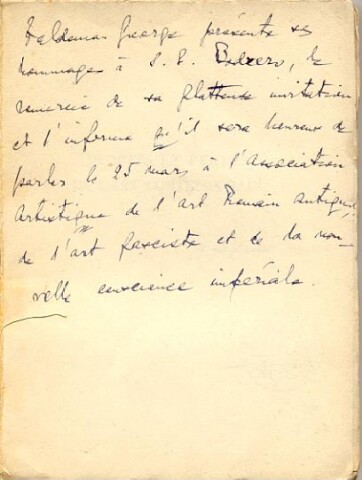 Waldemar George présente ses
hommages à S. E. , le
remercie de sa flatteuse invitation
et l'informe qu'il sera heureux de
parler le 25 mars à l'Association
Artistique de l'art Romain antique,
de l'art fasciste et de la nou-
velle conscience impériale.